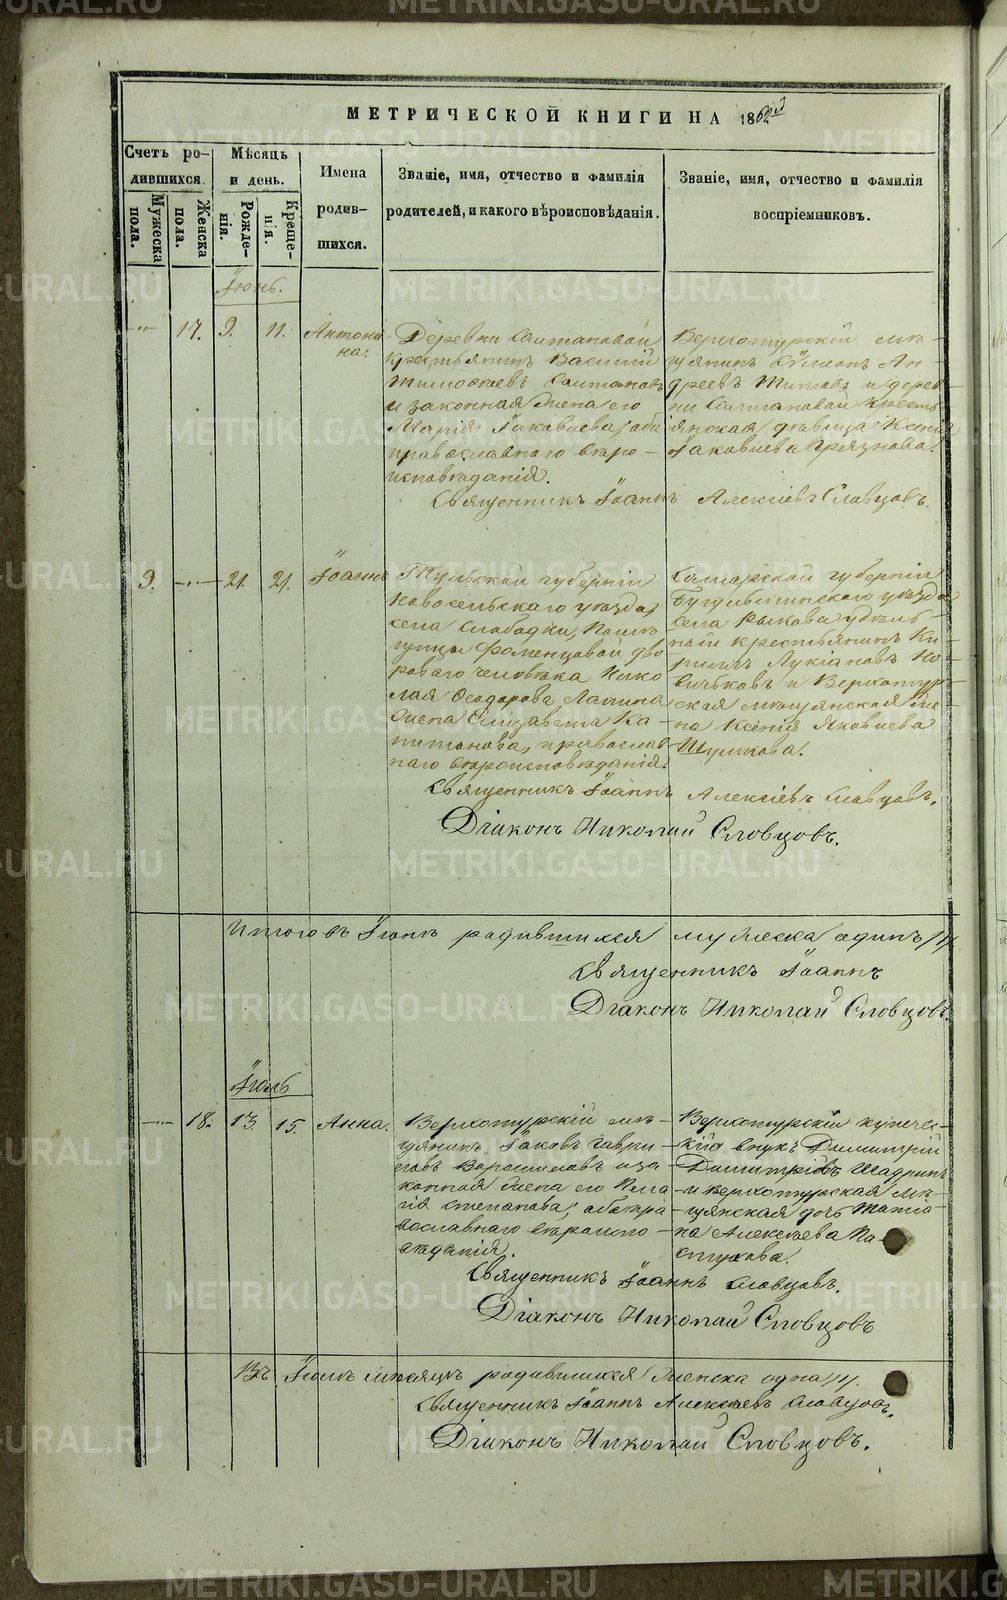 МЕТРИЧЕСКОЙ КНИГИ НА 1862/3
Счетъ ро-
дившихся.
Мѣсяцъ
и день.
Имена
родив-
шихся.
Званіе, имя, отчество и фамилія
родителей, и какого вѣроисповѣданія.
Званіе, имя, отчество и фамилія
воспріемниковъ.
Мужеска
пола.
Женска
пола.
Рожде-
нія.
Креще-
нія.
Іюнь.
17. 9. 11. Антони
на.
Деревни Салтановой
крестьянинъ Василій
Тимофеевъ Салтановъ
и законная жена его
Марія Іаковлева, оба
православнаго вѣро-
исповѣданія.
Верхотурскій мѣ-
щанинъ Сѵмеонъ Ан-
дреевъ Титовъ и дерев-
ни Салтановой кресть-
янская дѣвица Ксенія
Іаковлева Грязнова.
Священникъ Іоаннъ Алексіевъ Словцовъ.
9. 21. 21. Іоаннъ
Тульской губерніи
Новосельскаго уѣзда,
села Слободки, Помѣ-
щицы Фоменцовой дво
роваго человѣка Нико
лая Ѳеодорова Лапина
жена Елизавета Ка-
питонова, православ
наго вѣроисповѣданія.
Самарской губерніи
Бугульминскаго уѣзда
села Рыкова удѣль-
ный крестьянинъ Ки-
риллъ Лукіановъ Но-
вичковъ и Верхотур-
ская мѣщанская же-
на Ксенія Яковлева
Шумкова.
Священникъ Іоаннъ Алексіевъ Словцовъ.
Діаконъ Николай Словцовъ.
Итого въ Іюнѣ родившихся мужеска одинъ /1/.
Священникъ Іоаннъ
Діаконъ Николай Словцовъ.
Іюль
18. 13. 15. Анна.
Верхотурскій мѣ-
щанинъ Іаковъ Гаври
ловъ Ворошиловъ и за
конная жена его Пела
гія Степанова, оба пра
вославнаго вѣроиспо-
вѣданія.
Верхотурскій купече-
скій внукъ Димитрій
Димитріевъ Шадринъ
и Верхотурская мѣ-
щанская дочь Татіа
на Алексѣева Па-
стухова.
Священникъ Іоаннъ Словцовъ.
Діаконъ Николай Словцовъ
Въ Іюлѣ мѣсяцѣ родившихся женска одна /1/.
Священникъ Іоаннъ Алексѣевъ Словцовъ.
Діаконъ Николай Словцовъ.
METRIKI.GASO-URAL.RU